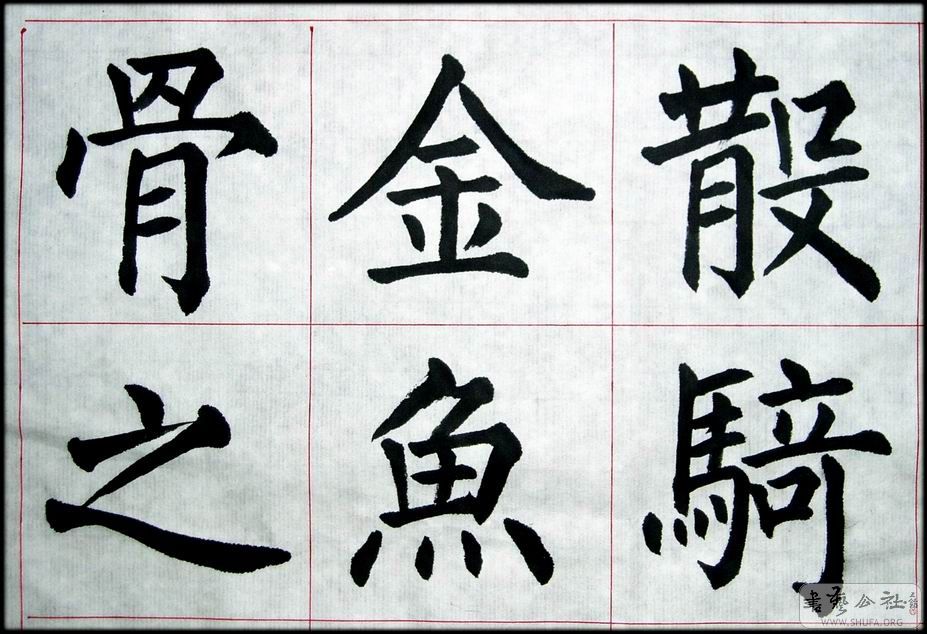 散騎
金魚
骨之
書藝公社
WWW.SHUFA.ORG